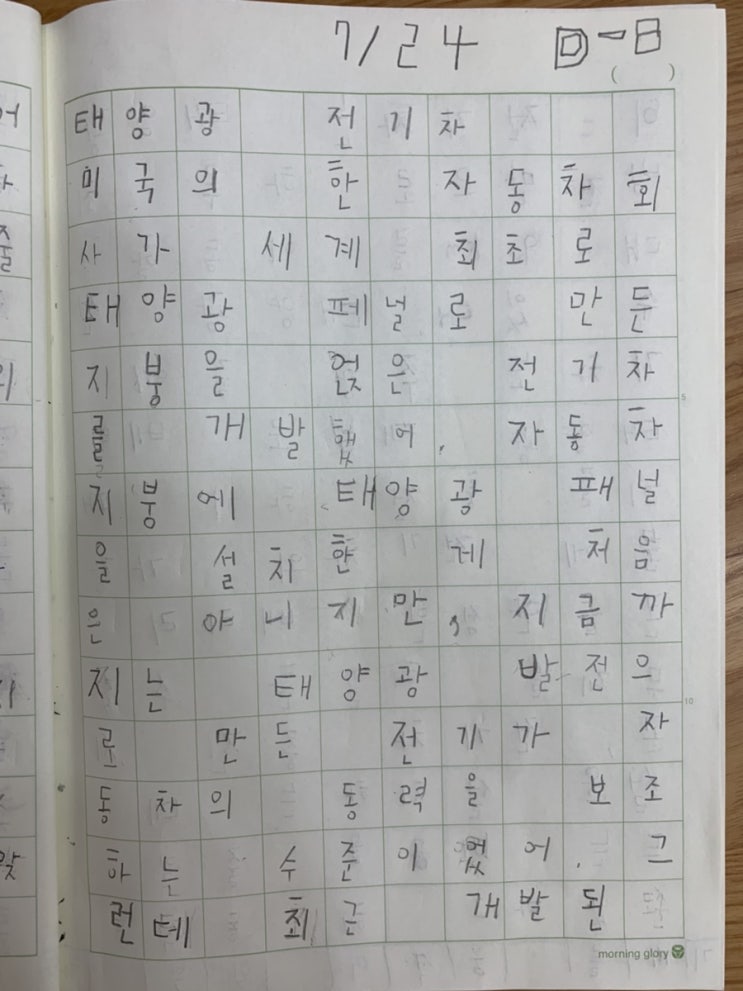 7/24 D-8
( )
태양광 전기차
미국의 한 자동차 회
사가 세계 최초로
태양광 페널로 만든
지붕을 얹은 전기차
를 개발했어. 자동차
지붕에 태양광 패널
을 설치한 게 처음
은 아니지만, 지금까
지는 태양광 발전으
로 만든 전기가 자
동차의 동력을 보조
하는 수준이었어. 그
런데 최근 개발된
morning glory
5
10